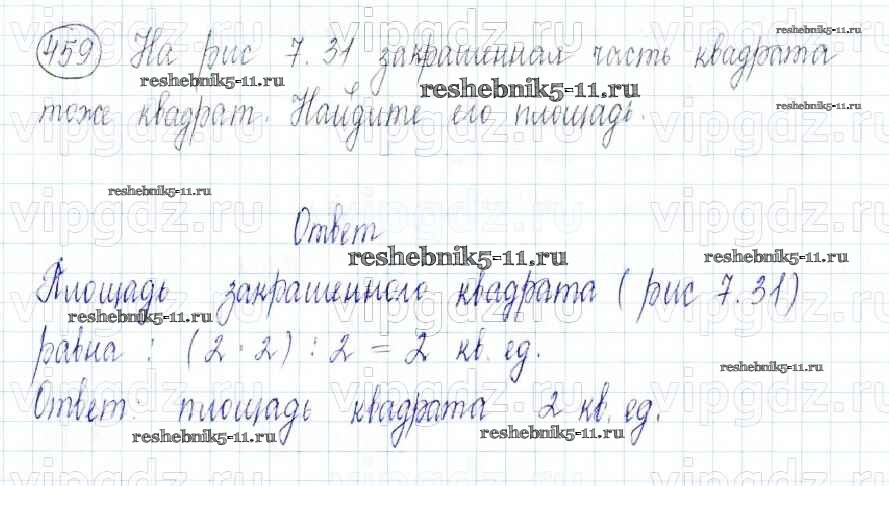 459 На рис 7.31 закрашенная часть квадрата
тоже квадрат. Найдите его площадь.
Ответ
Площадь закрашенного квадрата (рис 7.31)
равна : (2 · 2) : 2 = 2 кв. ед.
Ответ: площадь квадрата 2 кв. ед.
reshebnik5-11.ru
reshebnik5-11.ru
reshebnik5-11.ru
reshebnik5-11.ru
reshebnik5-11.ru
reshebnik5-11.ru
reshebnik5-11.ru
reshebnik5-11.ru
reshebnik5-11.ru
reshebnik5-11.ru
reshebnik5-11.ru
vipgdz.ru vipgdz.ru vipgdz.ru
vipgdz.ru vipgdz.ru vipgdz.ru
vipgdz.ru vipgdz.ru vipgdz.ru
vipgdz.ru vipgdz.ru vipgdz.ru
vipgdz.ru vipgdz.ru vipgdz.ru
vipgdz.ru vipgdz.ru vipgdz.ru